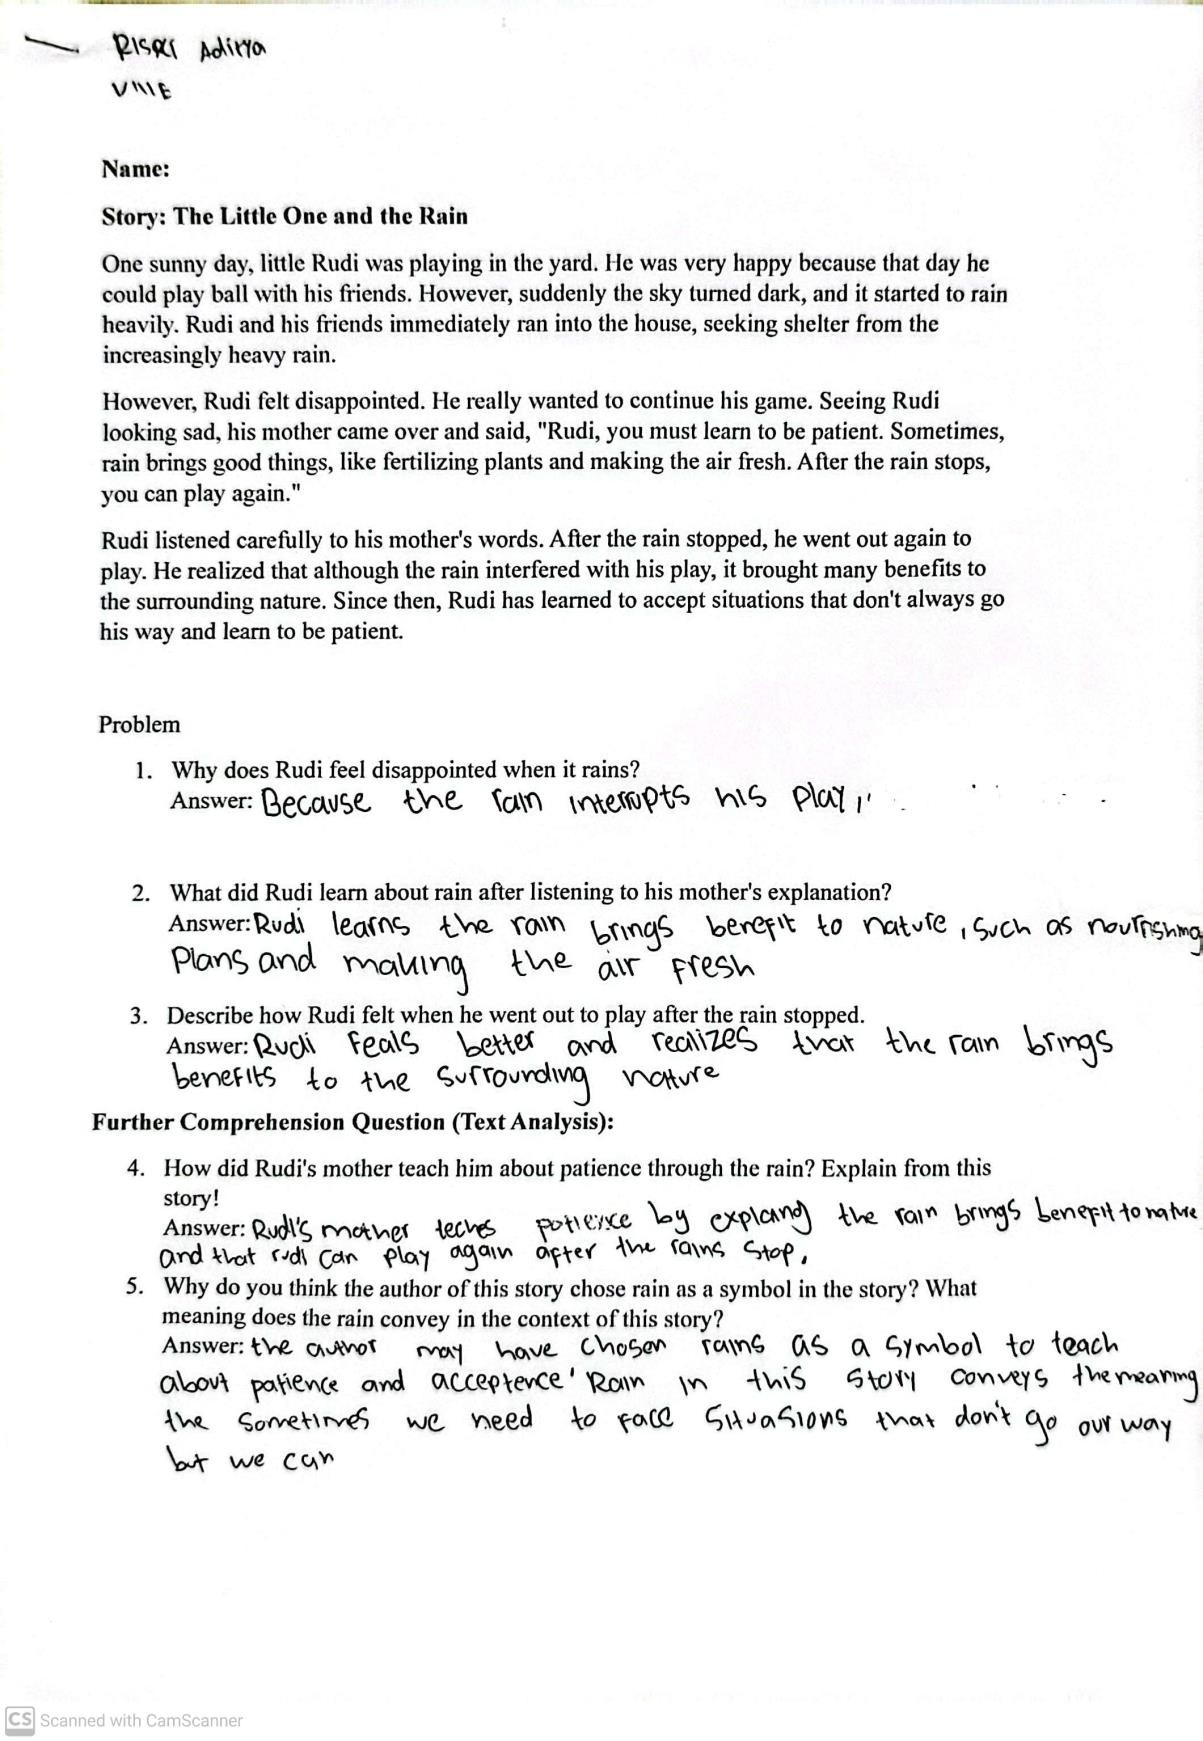 Riski Aditya
VIIIE
Name:
Story: The Little One and the Rain
One sunny day, little Rudi was playing in the yard. He was very happy because that day he
could play ball with his friends. However, suddenly the sky turned dark, and it started to rain
heavily. Rudi and his friends immediately ran into the house, seeking shelter from the
increasingly heavy rain.
However, Rudi felt disappointed. He really wanted to continue his game. Seeing Rudi
looking sad, his mother came over and said, "Rudi, you must learn to be patient. Sometimes,
rain brings good things, like fertilizing plants and making the air fresh. After the rain stops,
you can play again."
Rudi listened carefully to his mother's words. After the rain stopped, he went out again to
play. He realized that although the rain interfered with his play, it brought many benefits to
the surrounding nature. Since then, Rudi has learned to accept situations that don't always go
his way and learn to be patient.
Problem
1. Why does Rudi feel disappointed when it rains?
Answer: Because the rain interrupts his play,
2. What did Rudi learn about rain after listening to his mother's explanation?
Answer: Rudi learns the rain brings benefit to nature, such as nourishing
Plans and making the air fresh
3. Describe how Rudi felt when he went out to play after the rain stopped.
Answer: Rudi feals better and realizes that the rain brings
benefits to the surrounding nature
Further Comprehension Question (Text Analysis):
4. How did Rudi's mother teach him about patience through the rain? Explain from this
story!
Answer: Rudi's mother teches patience by explaing the rain brings benefit to nature
and that rudi can play again after the rains stop.
5. Why do you think the author of this story chose rain as a symbol in the story? What
meaning does the rain convey in the context of this story?
Answer: the author may have chosen rains as a symbol to teach
about patience and acceptence' Rain in this story conveys the meaning
the sometimes we need to face situasions that don't go our way
but we can
CS Scanned with CamScanner